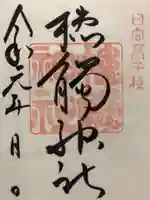 日向高千穂
槵觸神社
令和元年 月 日